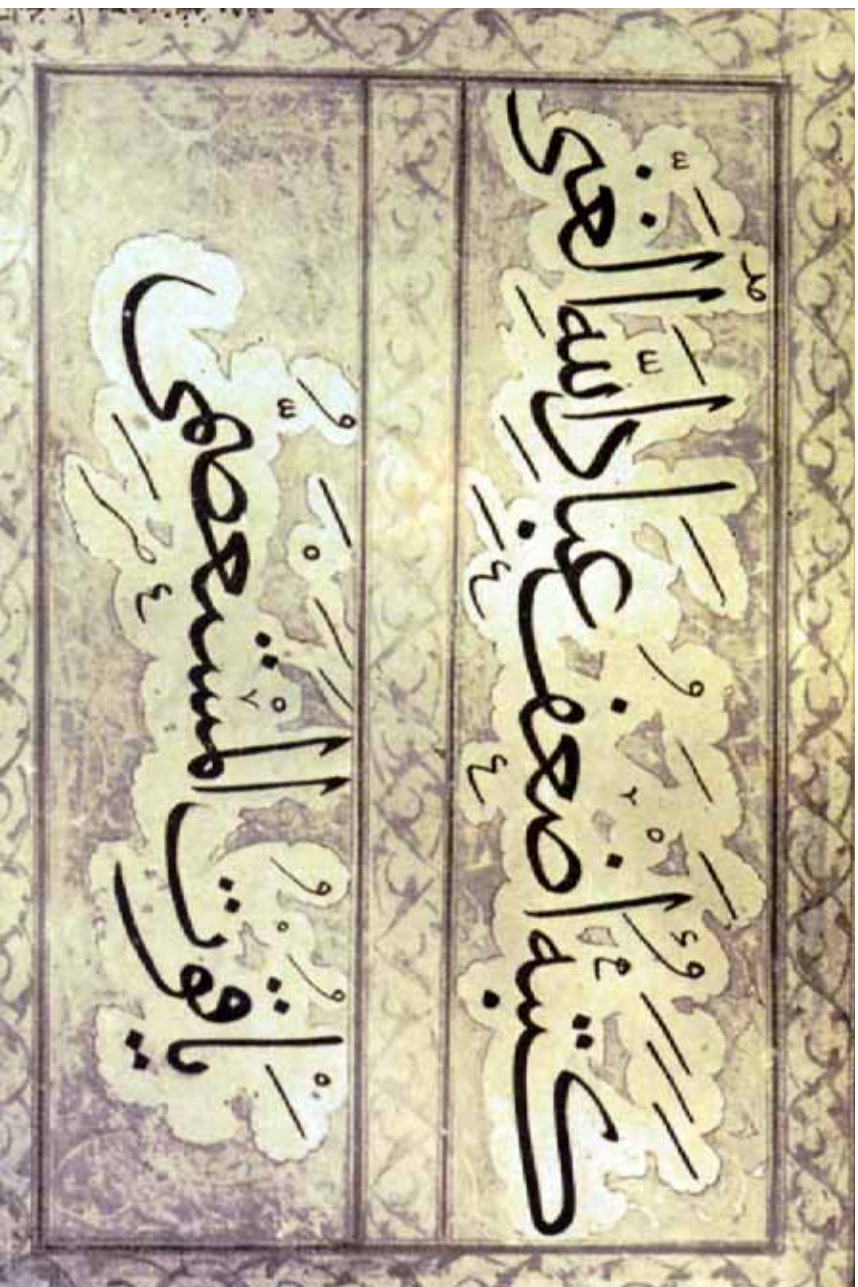 كتبه اضعف عباد الله الغنى
ياقوت المستعصمى